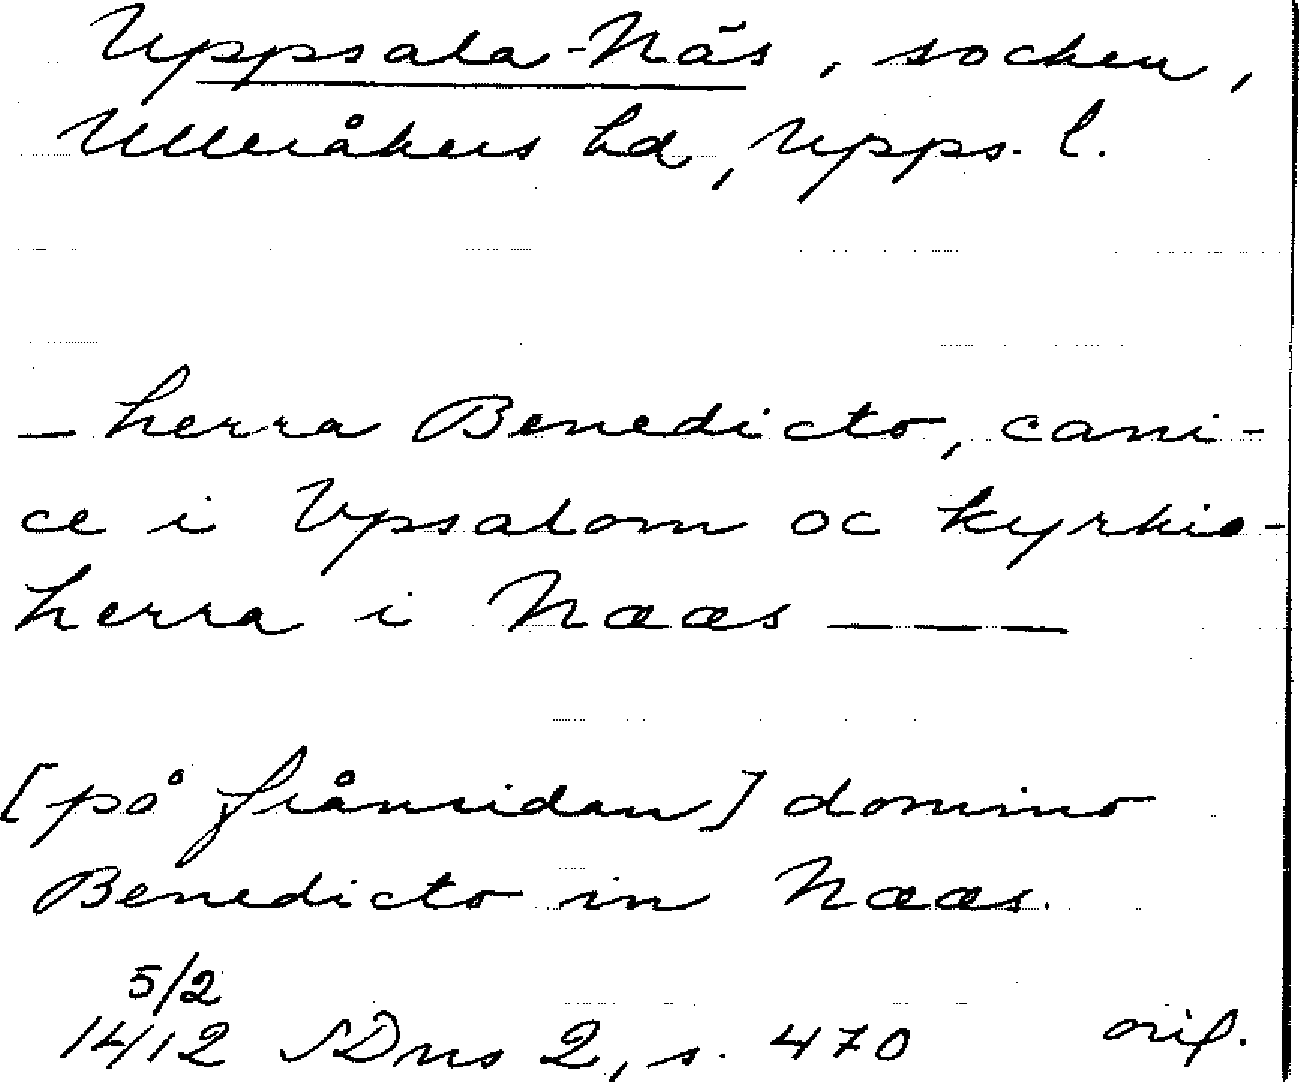 Uppsala-Näs, socken,
Ulleråkers hd, Upps. l.
– herra Benedicto, cani-
ce i Vpsalom oc kyrkio-
herra i Næs ———
[på frånsidan] domino
Benedicto in Næs.
5/2
1412 SDns 2, s. 470 orig.